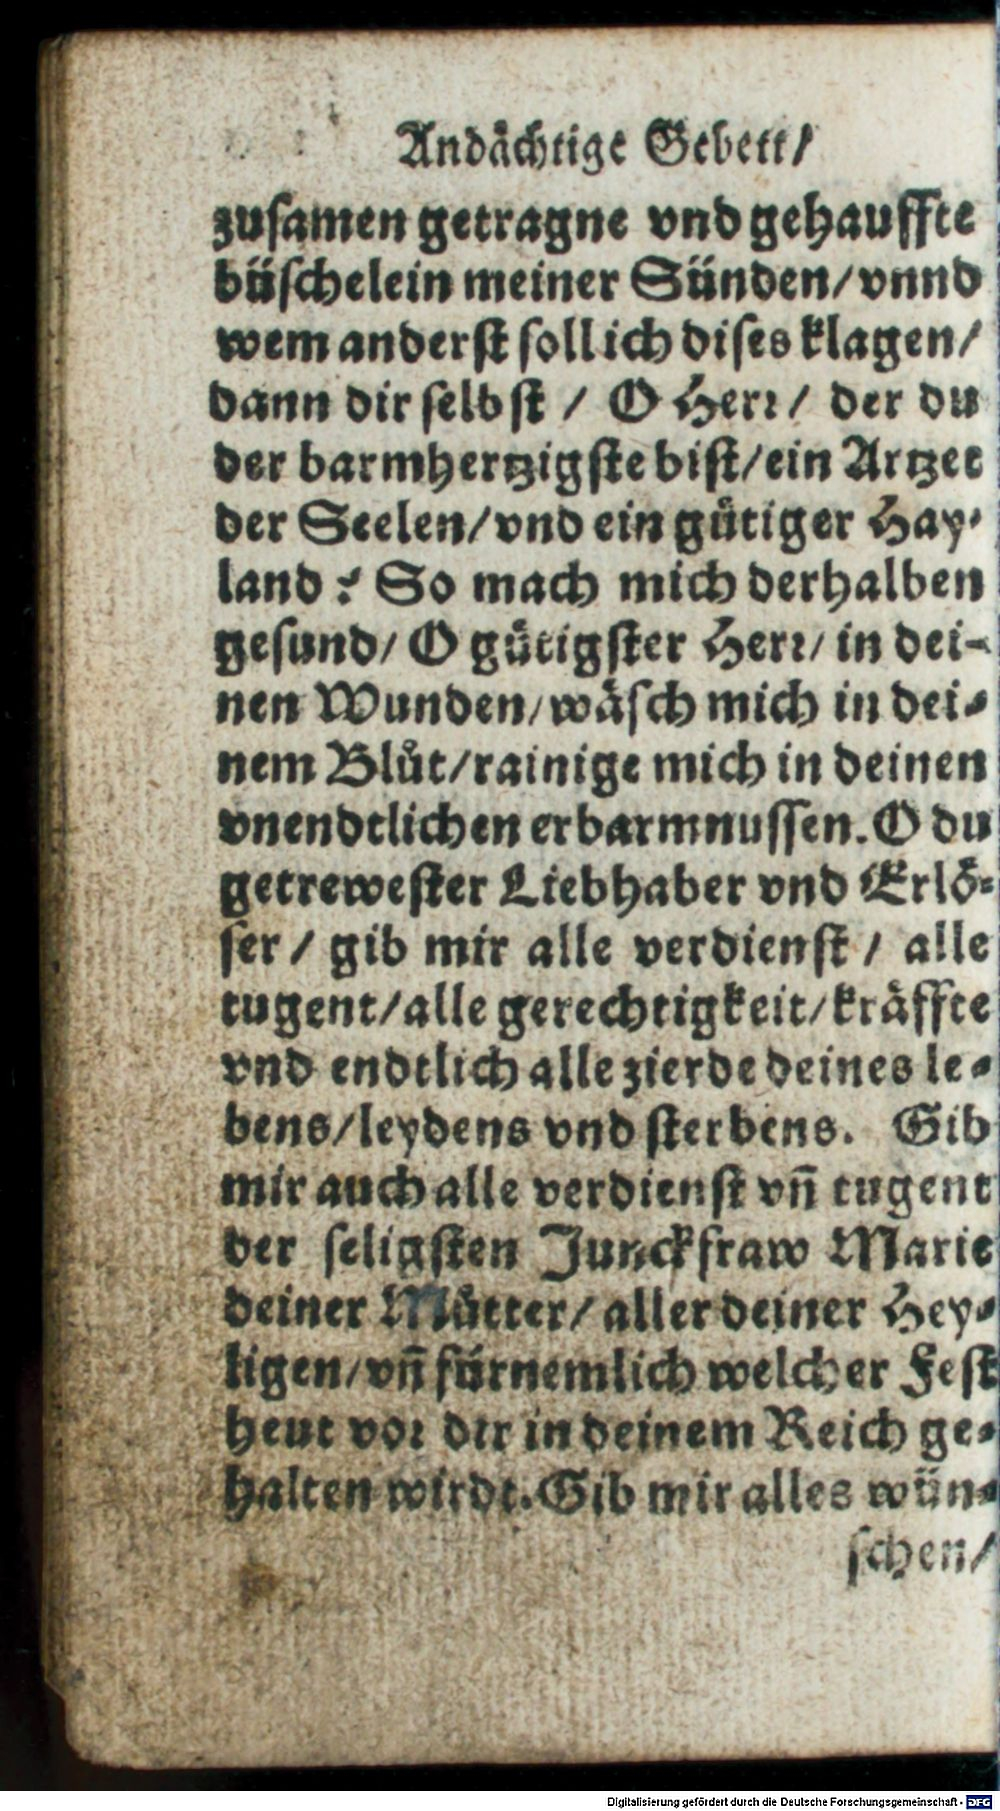 Andächtige Gebett/
zusamen getragne vnd gehauffte
büschelein meiner Sünden/ vnnd
wem anderst soll ich dises klagen/
dann dir selbst / O Herr / der du
der barmhertzigste bist/ ein Artzet
der Seelen/ vnd ein gütiger Hay-
land? So mach mich derhalben
gesund/ O gütigster Herr/ in dei-
nen Wunden/ wäsch mich in dei-
nem Blůt/ rainige mich in deinen
vnendtlichen erbarmnussen. O du
getrewester Liebhaber vnd Erlö-
ser / gib mir alle verdienst / alle
tugent/ alle gerechtigkeit/ kräffte
vnd endtlich alle zierde deines le-
bens/ leydens vnd sterbens. Gib
mir auch alle verdienst vñ tugent
der seligsten Junckfraw Marie
deiner Můtter/ aller deiner Hey-
ligen/ vñ fürnemlich welcher Fest
heut vor dir in deinem Reich ge-
halten wirdt. Gib mir alles wün-
schen/
Digitalisierung gefördert durch die Deutsche Forschungsgemeinschaft - DFG